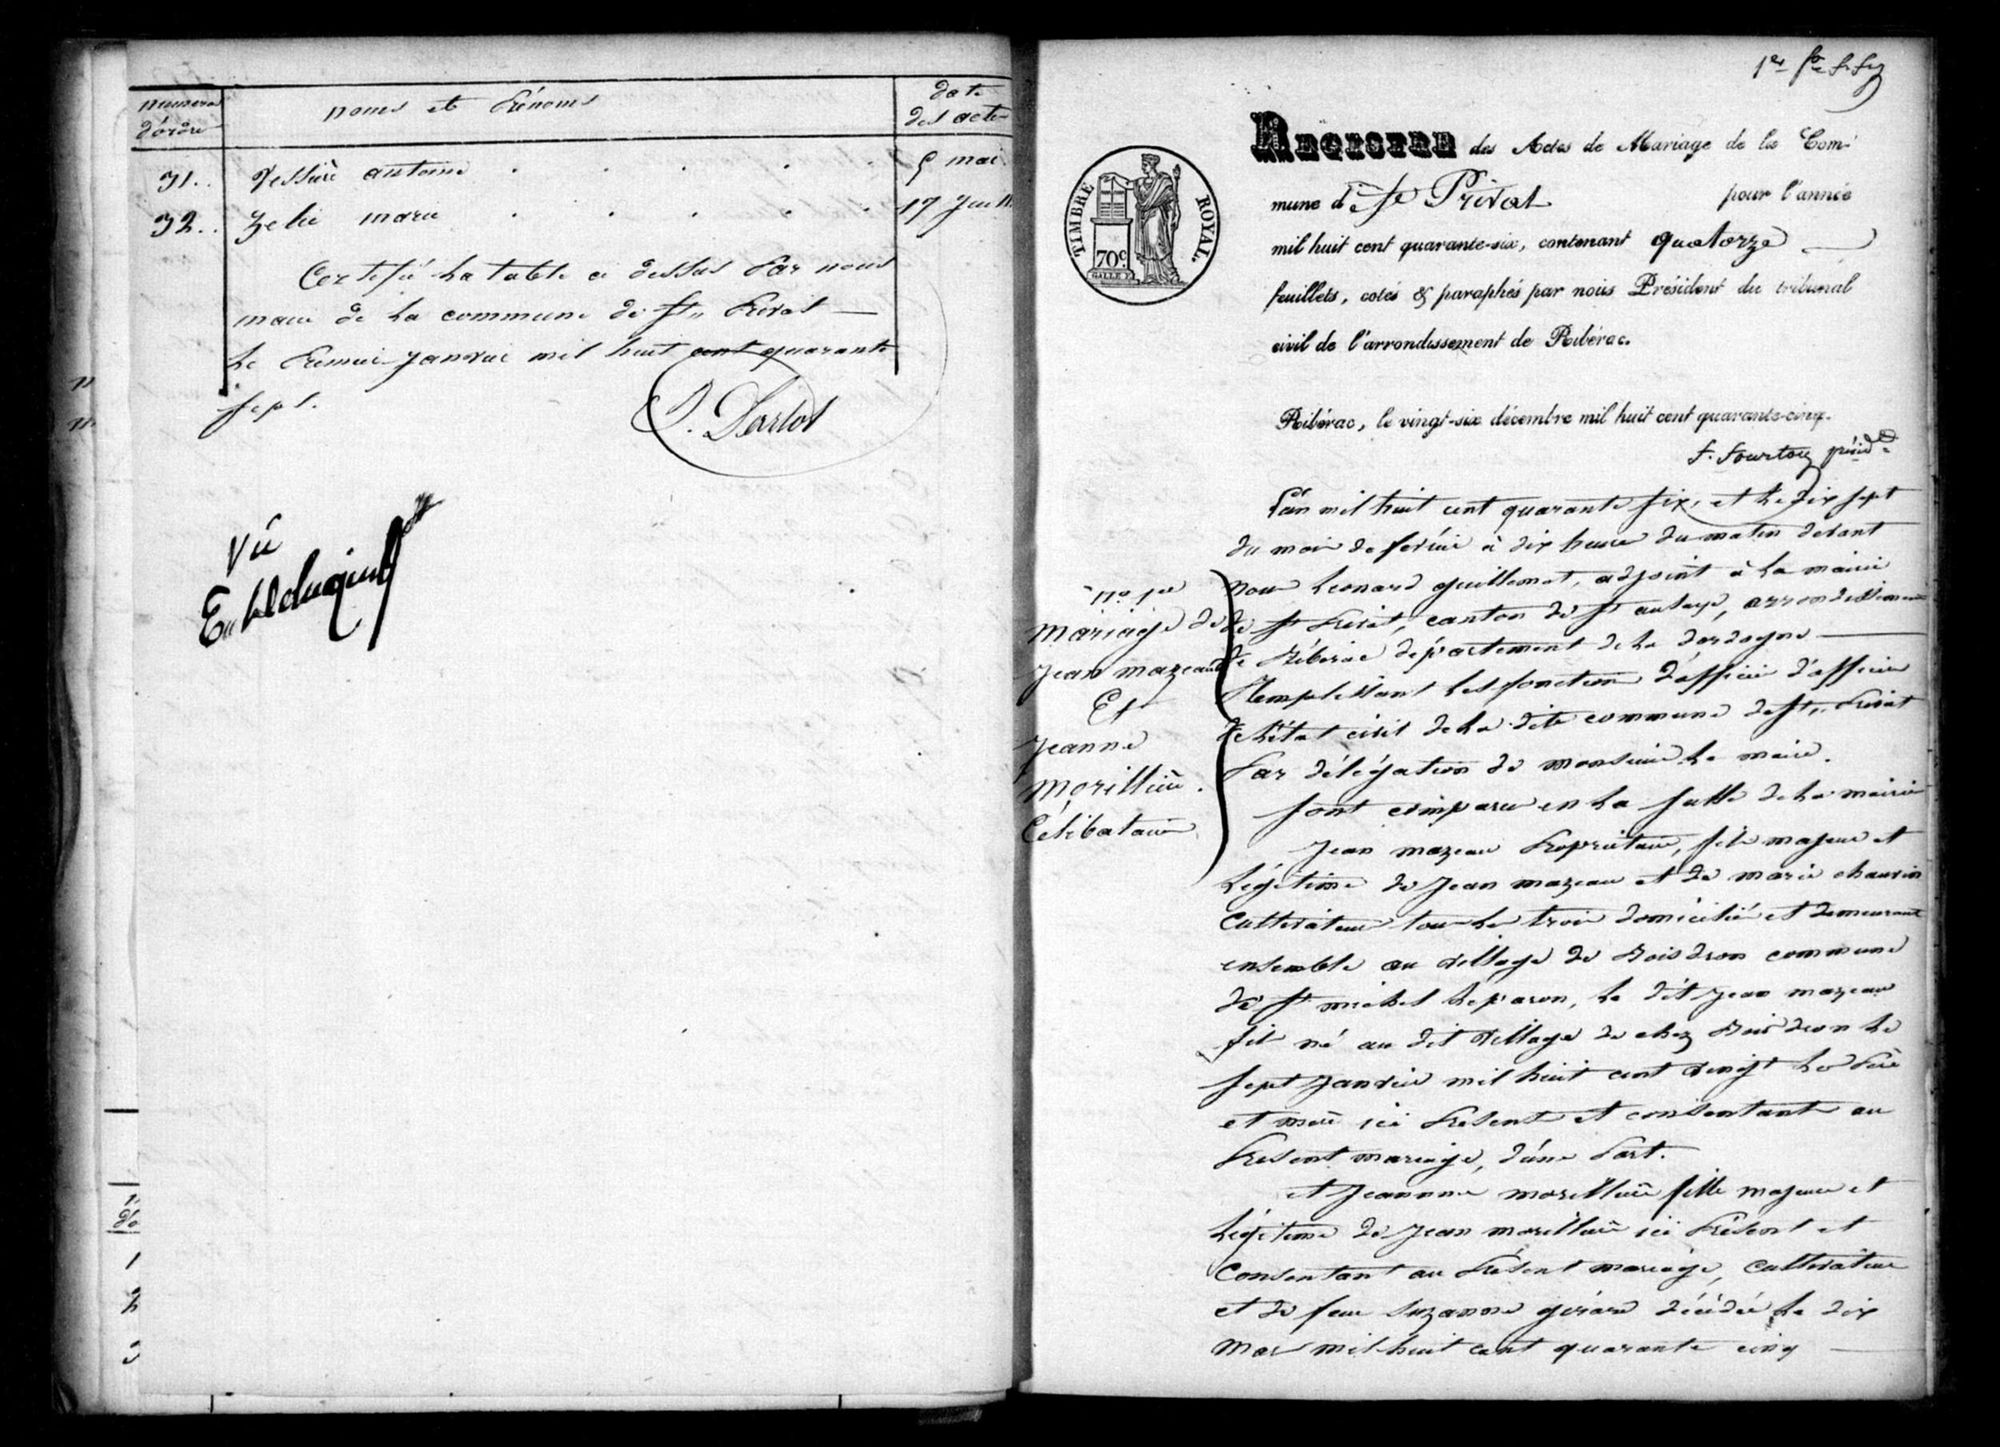 numero
d'ordre
noms et Prénoms
date
des actes
31.. Vessiere antoine 5 mai.
32.. Zelie marie 17 Juill
Certifié la table a dessus Par nous
maire de la commune de St Privat
le Premier Janvier mil huit cent quarante
sept.
Vû
1er
REGISTRE des Actes de Mariage de la Com-
mune de St Privat pour l'année
mil huit cent quarante-six, contenant quatorze
feuillets, cotés & paraphés par nous Président du tribunal
civil de l'arrondissement de Ribérac.
TIMBRE ROYAL.
70c.
Ribérac, le vingt-six décembre mil huit cent quarante-cinq.
f. fourtou présid
L'an mil huit cent quarante six, et le dix sept
du mois de fevrier à dix heures du matin devant
nous Leonard guillemot, adjoint à la mairie
de St Privat, canton de St aulaye, arrondissement
de Riberac département de la dordogne
Remplissant les fonction d'officier d'officier
de l'état civil de la dite commune de St Privat
Par délégation de monsieur le maire.
sont comparu en la salle de la mairie
Jean mazeau Propriétaire, fils majeur et
légitime de Jean mazeau et de marie chauvin
Cultivateur tous les trois domicilié et demeurant
ensemble au village de Boisdron commune
de St michel leparon, le dit Jean mazeau
fils né au dit village de chez Boisdron le
sept Janvier mil huit cent vingt les Père
et mère ici Présent et consentant au
Présent mariage, d'une Part.
et Jeannne morilliere fille majeure et
légitime de Jean morilliere ici Présent et
Consentant au Présent mariage, Cultivateur
et de feue Suzanne gérard décédée le dix
mars mil huit cent quarante cinq
no 1er
mariage de
Jean mazeaud
Et
Jeanne
Morilliere.
Célibataire